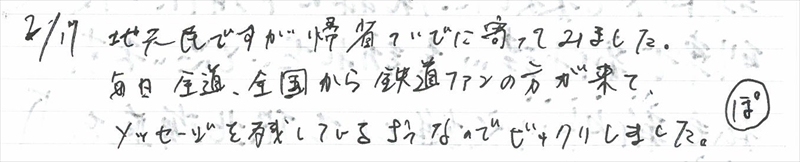 2/17 地元民ですが帰省ついでに寄ってみました。
毎日 全道、全国から鉄道ファンの方が来て、
メッセージを残しているようなのでビックリしました。 ぽ